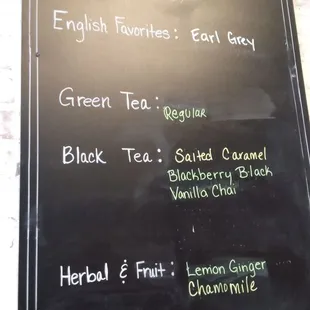 English Favorites: Earl Grey
Green Tea: Regular
Black Tea: Salted Caramel
Blackberry Black
Vanilla Chai
Herbal & Fruit: Lemon Ginger
Chamomile